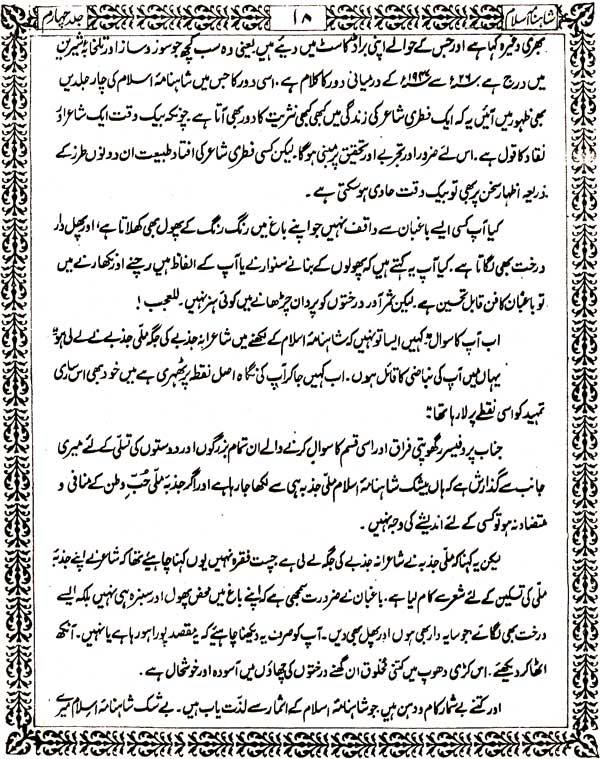 شاہنامۂ اسلام
۱۸
جلد چہارم
بھری وغیرہ کہا ہے اور جس کے حوالے اپنی براڈ کاسٹ میں دیئے ہیں یعنی وہ سب کچھ جو سوز و ساز اور تلخابۂ شیریں
میں درج ہے ۱۹۲۶ء سے ۱۹۳۶ء کے درمیانی دور کا کلام ہے۔ اسی دور کا جس میں شاہنامۂ اسلام کی چار جلدیں
بھی ظہور میں آئیں یہ کہ ایک فطری شاعر کی زندگی میں کبھی کبھی نثریت کا دور بھی آتا ہے۔ چونکہ بیک وقت ایک شاعر اور
نقاد کا قول ہے۔ اس لئے ضرور اور تجربے اور تحقیق پر مبنی ہوگا۔ لیکن کسی فطری شاعر کی افتاد طبیعت ان دونوں طرز کے
ذریعہ اظہار سخن پر بھی تو بیک وقت حاوی ہو سکتی ہے۔
کیا آپ کسی ایسے باغبان سے واقف نہیں جو اپنے باغ میں رنگ رنگ کے پھول بھی کھلاتا ہے، اور پھل دار
درخت بھی لگاتا ہے۔ کیا آپ یہ کہتے ہیں کہ پھولوں کے بنانے سنوارنے یا آپ کے الفاظ میں رچنے اور نکھارنے میں
تو باغبان کا فن قابل تحسین ہے۔ لیکن ثمر آور درختوں کو پروان چڑھانے میں کوئی ہنر نہیں۔ للعجب!
اب آپ کا سوال "کہیں ایسا تو نہیں کہ شاہنامۂ اسلام کے لکھنے میں شاعرانہ جذبے کی جگہ ملی جذبے نے لے لی ہو"
یہاں میں آپ کی نباضی کا قائل ہوں۔ اب کہیں جا کر آپ کی نگاہ اصل نقطہ پر ٹھہری ہے میں خود بھی اس ساری
تمہید کو اسی نقطے پر لا رہا تھا:
جناب پروفیسر رگھوپتی فراق اور اسی قسم کا سوال کرنے والے ان تمام بزرگوں اور دوستوں کی تسلی کے لئے میری
جانب سے گذارش ہے کہ ہاں بیشک شاہنامۂ اسلام ملی جذبہ ہی سے لکھا جا رہا ہے اور اگر جذبۂ ملی حُبِّ وطن کے منافی و
متضاد نہ ہو تو کسی کے لئے اندیشے کی وجہ نہیں۔
لیکن یہ کہنا کہ ملی جذبہ نے شاعرانہ جذبے کی جگہ لے لی ہے چست فقرہ نہیں یوں کہنا چاہیئے تھا کہ شاعر نے اپنے جذبۂ
ملی کی تسکین کے لئے شعر سے کام لیا ہے۔ باغبان نے ضرورت سمجھی ہے کہ اپنے باغ میں محض پھول اور سبزہ ہی نہیں بلکہ ایسے
درخت بھی لگائے جو سایہ دار بھی ہوں اور پھل بھی دیں۔ آپ کو صرف یہ دیکھنا چاہیئے کہ یہ مقصد پورا ہو رہا ہے یا نہیں۔ آنکھ
اٹھا کر دیکھئے۔ اس کڑی دھوپ میں کتنی مخلوق ان گھنے درختوں کی چھاؤں میں آسودہ اور خوشحال ہے۔
اور کتنے بے شمار کام و دہن ہیں جو شاہنامۂ اسلام کے اثمار سے لذت یاب ہیں۔ بے شک شاہنامۂ اسلام میرے